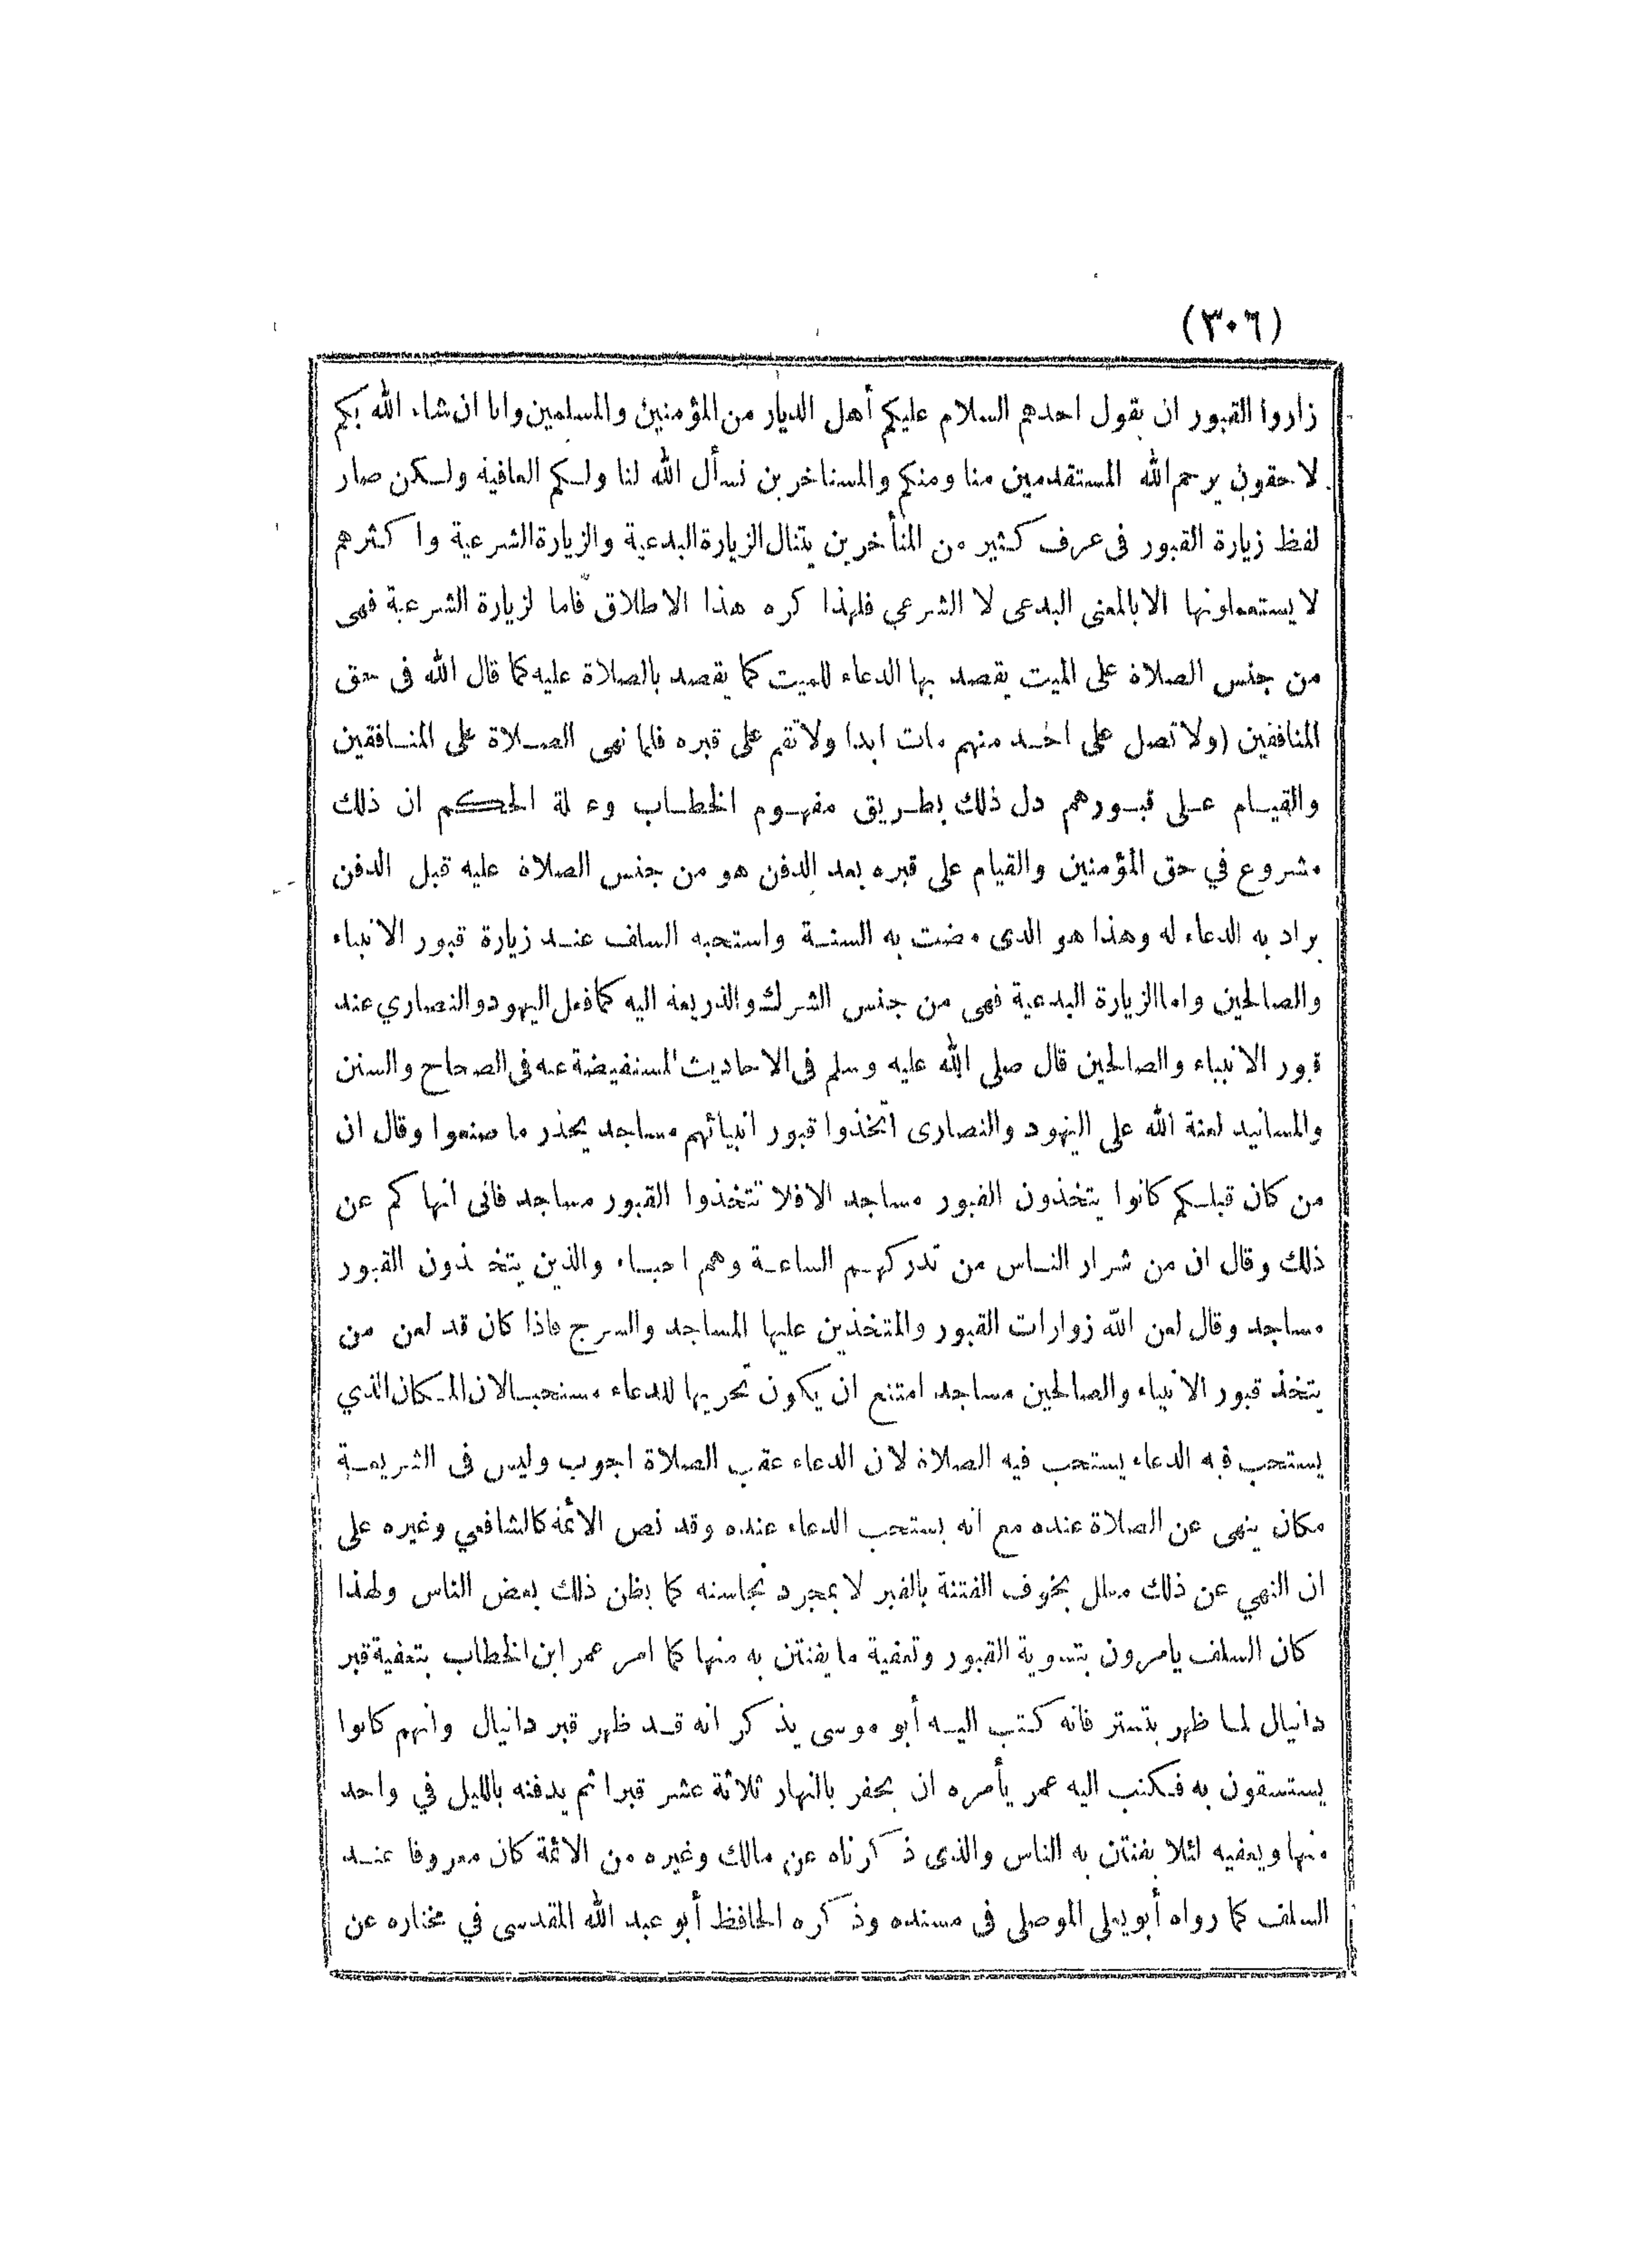 (٣٠٦)
زاروا القبور ان يقول احدهم السلام عليكم أهل الديار من المؤمنين والمسلمين وانا ان شاء الله بكم
لاحقون يرحم الله المستقدمين منا ومنكم والمستاخرين نسأل الله لنا ولكم العافية ولكن صار
لفظ زيارة القبور فى عرف كثير من المتأخرين يتنال الزيارة البدعية والزيارة الشرعية واكثرهم
لا يستعملونها الا بالمعنى البدعى لا الشرعي فلهذا كره هذا الاطلاق فاما لزيارة الشرعية فهى
من جنس الصلاة على الميت يقصد بها الدعاء للميت كما يقصد بالصلاة عليه كما قال الله فى حق
المنافقين (ولا تصل على احد منهم مات ابدا ولا تقم على قبره فلما نهى الصلاة على المنافقين
والقيام على قبورهم دل ذلك بطريق مفهوم الخطاب وعلة الحكم ان ذلك
مشروع في حق المؤمنين والقيام على قبره بعد الدفن هو من جنس الصلاة عليه قبل الدفن
يراد به الدعاء له وهذا هو الدى مضت به السنة واستحبه السلف عند زيارة قبور الانبياء
والصالحين واما الزيارة البدعية فهى من جنس الشرك والذريعة اليه كما فعل اليهود والنصاري عند
قبور الانبياء والصالحين قال صلى الله عليه وسلم فى الاحاديث المستفيضة عنه فى الصحاح والسنن
والمسانيد لعنة الله على اليهود والنصارى اتخذوا قبور انبيائهم مساجد يحذر ما صنعوا وقال ان
من كان قبلكم كانوا يتخذون القبور مساجد الا فلا تتخذوا القبور مساجد فانى انهاكم عن
ذلك وقال ان من شرار الناس من تدركهم الساعة وهم احياء والذين يتخذون القبور
مساجد وقال لعن الله زوارات القبور والمتخذين عليها المساجد والسرج فاذا كان قد لعن من
يتخذ قبور الانبياء والصالحين مساجد امتنع ان يكون تحريها للدعاء مستحبا لان المكان الذي
يستحب فيه الدعاء يستحب فيه الصلاة لان الدعاء عقب الصلاة اجوب وليس فى الشريعة
مكان ينهى عن الصلاة عنده مع انه يستحب الدعاء عنده وقد نص الائمة كالشافعي وغيره على
ان النهي عن ذلك معلل بخوف الفتنة بالقبر لا بمجرد نجاسته كما يظن ذلك بعض الناس ولهذا
كان السلف يامرون بتسوية القبور وتعفية ما يفتتن به منها كما امر عمر ابن الخطاب بتعفية قبر
دانيال لما ظهر بتستر فانه كتب اليه أبو موسى يذكر انه قد ظهر قبر دانيال وانهم كانوا
يستسقون به فكتب اليه عمر يأمره ان يحفر بالنهار ثلاثة عشر قبرا ثم يدفنه بالليل في واحد
منها ويعفيه لئلا يفتتن به الناس والذى ذكرناه عن مالك وغيره من الائمة كان معروفا عند
السلف كما رواه أبو يعلى الموصلى فى مسنده وذكره الحافظ أبو عبد الله المقدسى في مختاره عن